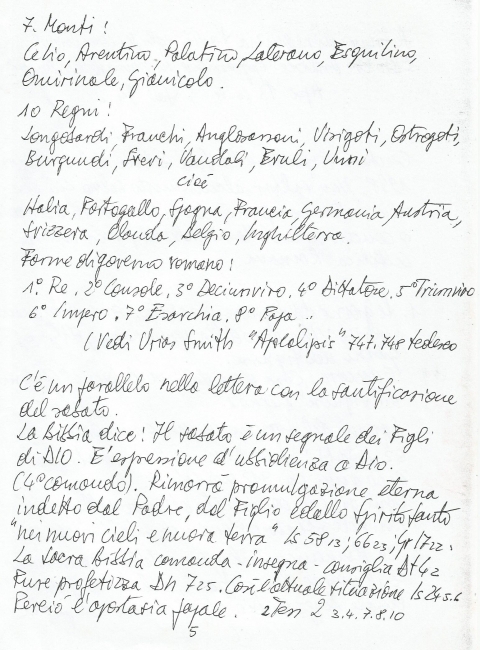 7. Monti!
Celio, Aventino, Palatino, Laterano, Esquilino,
Quirinale, Gianicolo.
10 Regni!
Longobardi, Franchi, Anglosassoni, Visigoti, Ostrogoti,
Burgundi, Svevi, Vandali, Eruli, Unni
cioè
Italia, Portogallo, Spagna, Francia, Germania, Austria,
Svizzera, Olanda, Belgio, Inghilterra.
Forme di governo romano!
1° Re, 2° Console, 3° Decemviro, 4° Dittatore, 5° Triumviro
6° Impero, 7° Esarchia, 8° Papa ..
(Vedi Urias Smith "Apokalipsis" 747.748 tedesco
C'è un parallelo nella lettera con la santificazione
del sabato.
La Bibbia dice! Il sabato è un segnale dei Figli
di DIO. E' espressione d'ubbidienza a Dio.
(4° comando). Rimarrà promulgazione eterna
indetto dal Padre, dal Figlio e dallo Spirito Santo
"nei nuovi cieli e nuova terra" Is 58 13; 66 23; 17 22.
La Sacra Bibbia comanda - insegna - consiglia Dt 4 2
Pure profetizza Dn 7 25. Così l'attuale situazione Is 24 5.6
Perciò l'apostasia papale. 2 Tess 2 3.4.7.8.10
5